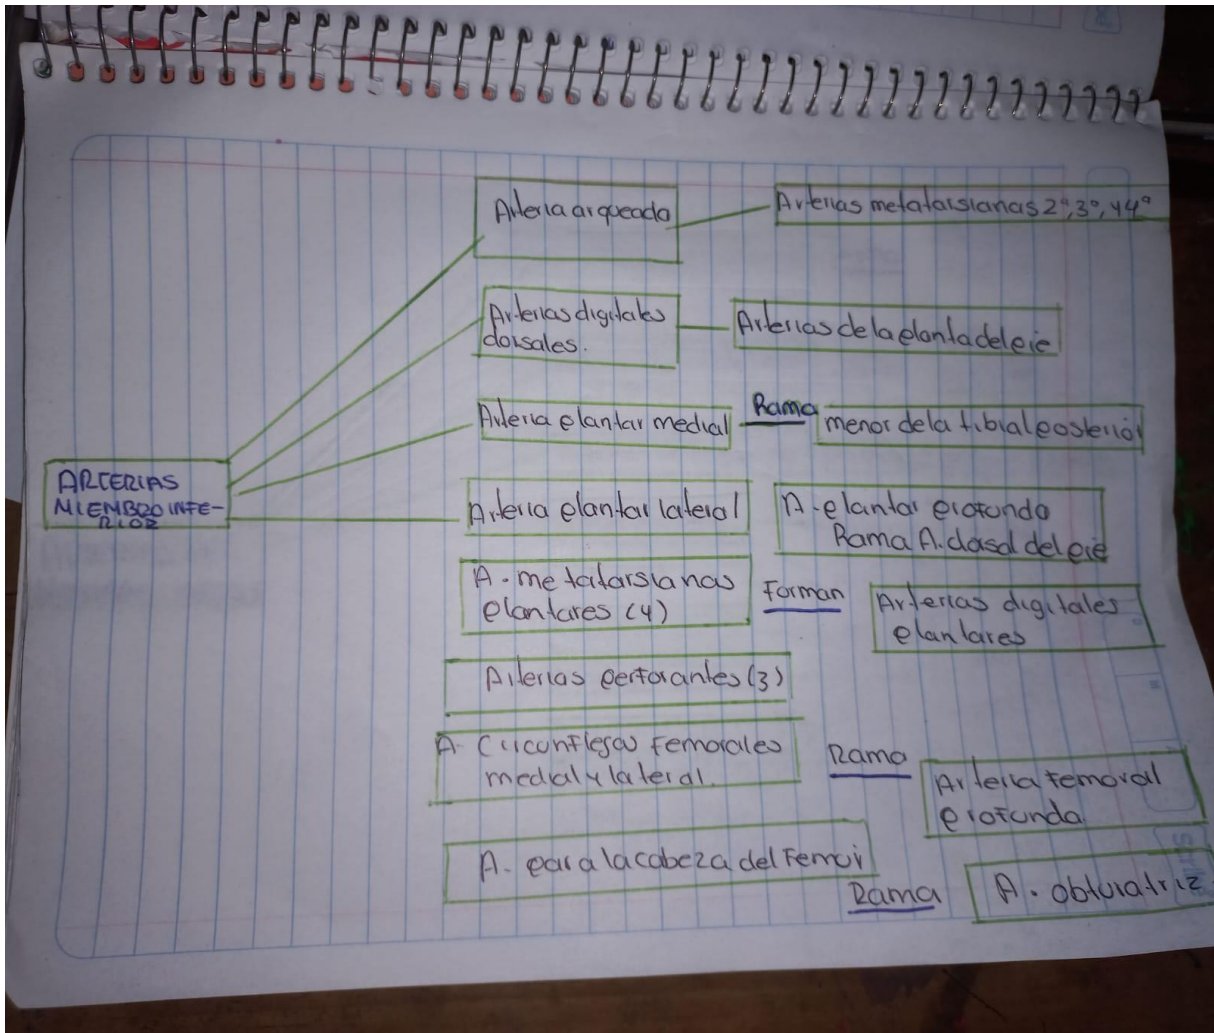 Arteria arqueada
Arterias metatarsianas 2°, 3°, y 4°
Arterias digitales
dorsales.
Arterias de la planta del pie
Arteria plantar medial
Rama
menor de la tibial posterior
ARTERIAS
MIEMBRO INFE-
RIOR
Arteria plantar lateral
A. plantar profunda
Rama A. dosal del pie
A. metatarsianas
plantares (4)
Forman
Arterias digitales
plantares
Arterias perforantes (3)
A. Circunflejas Femorales
medial y lateral.
Rama
Arteria Femoral
profunda
A. para la cabeza del Femur
Rama
A. obturatriz